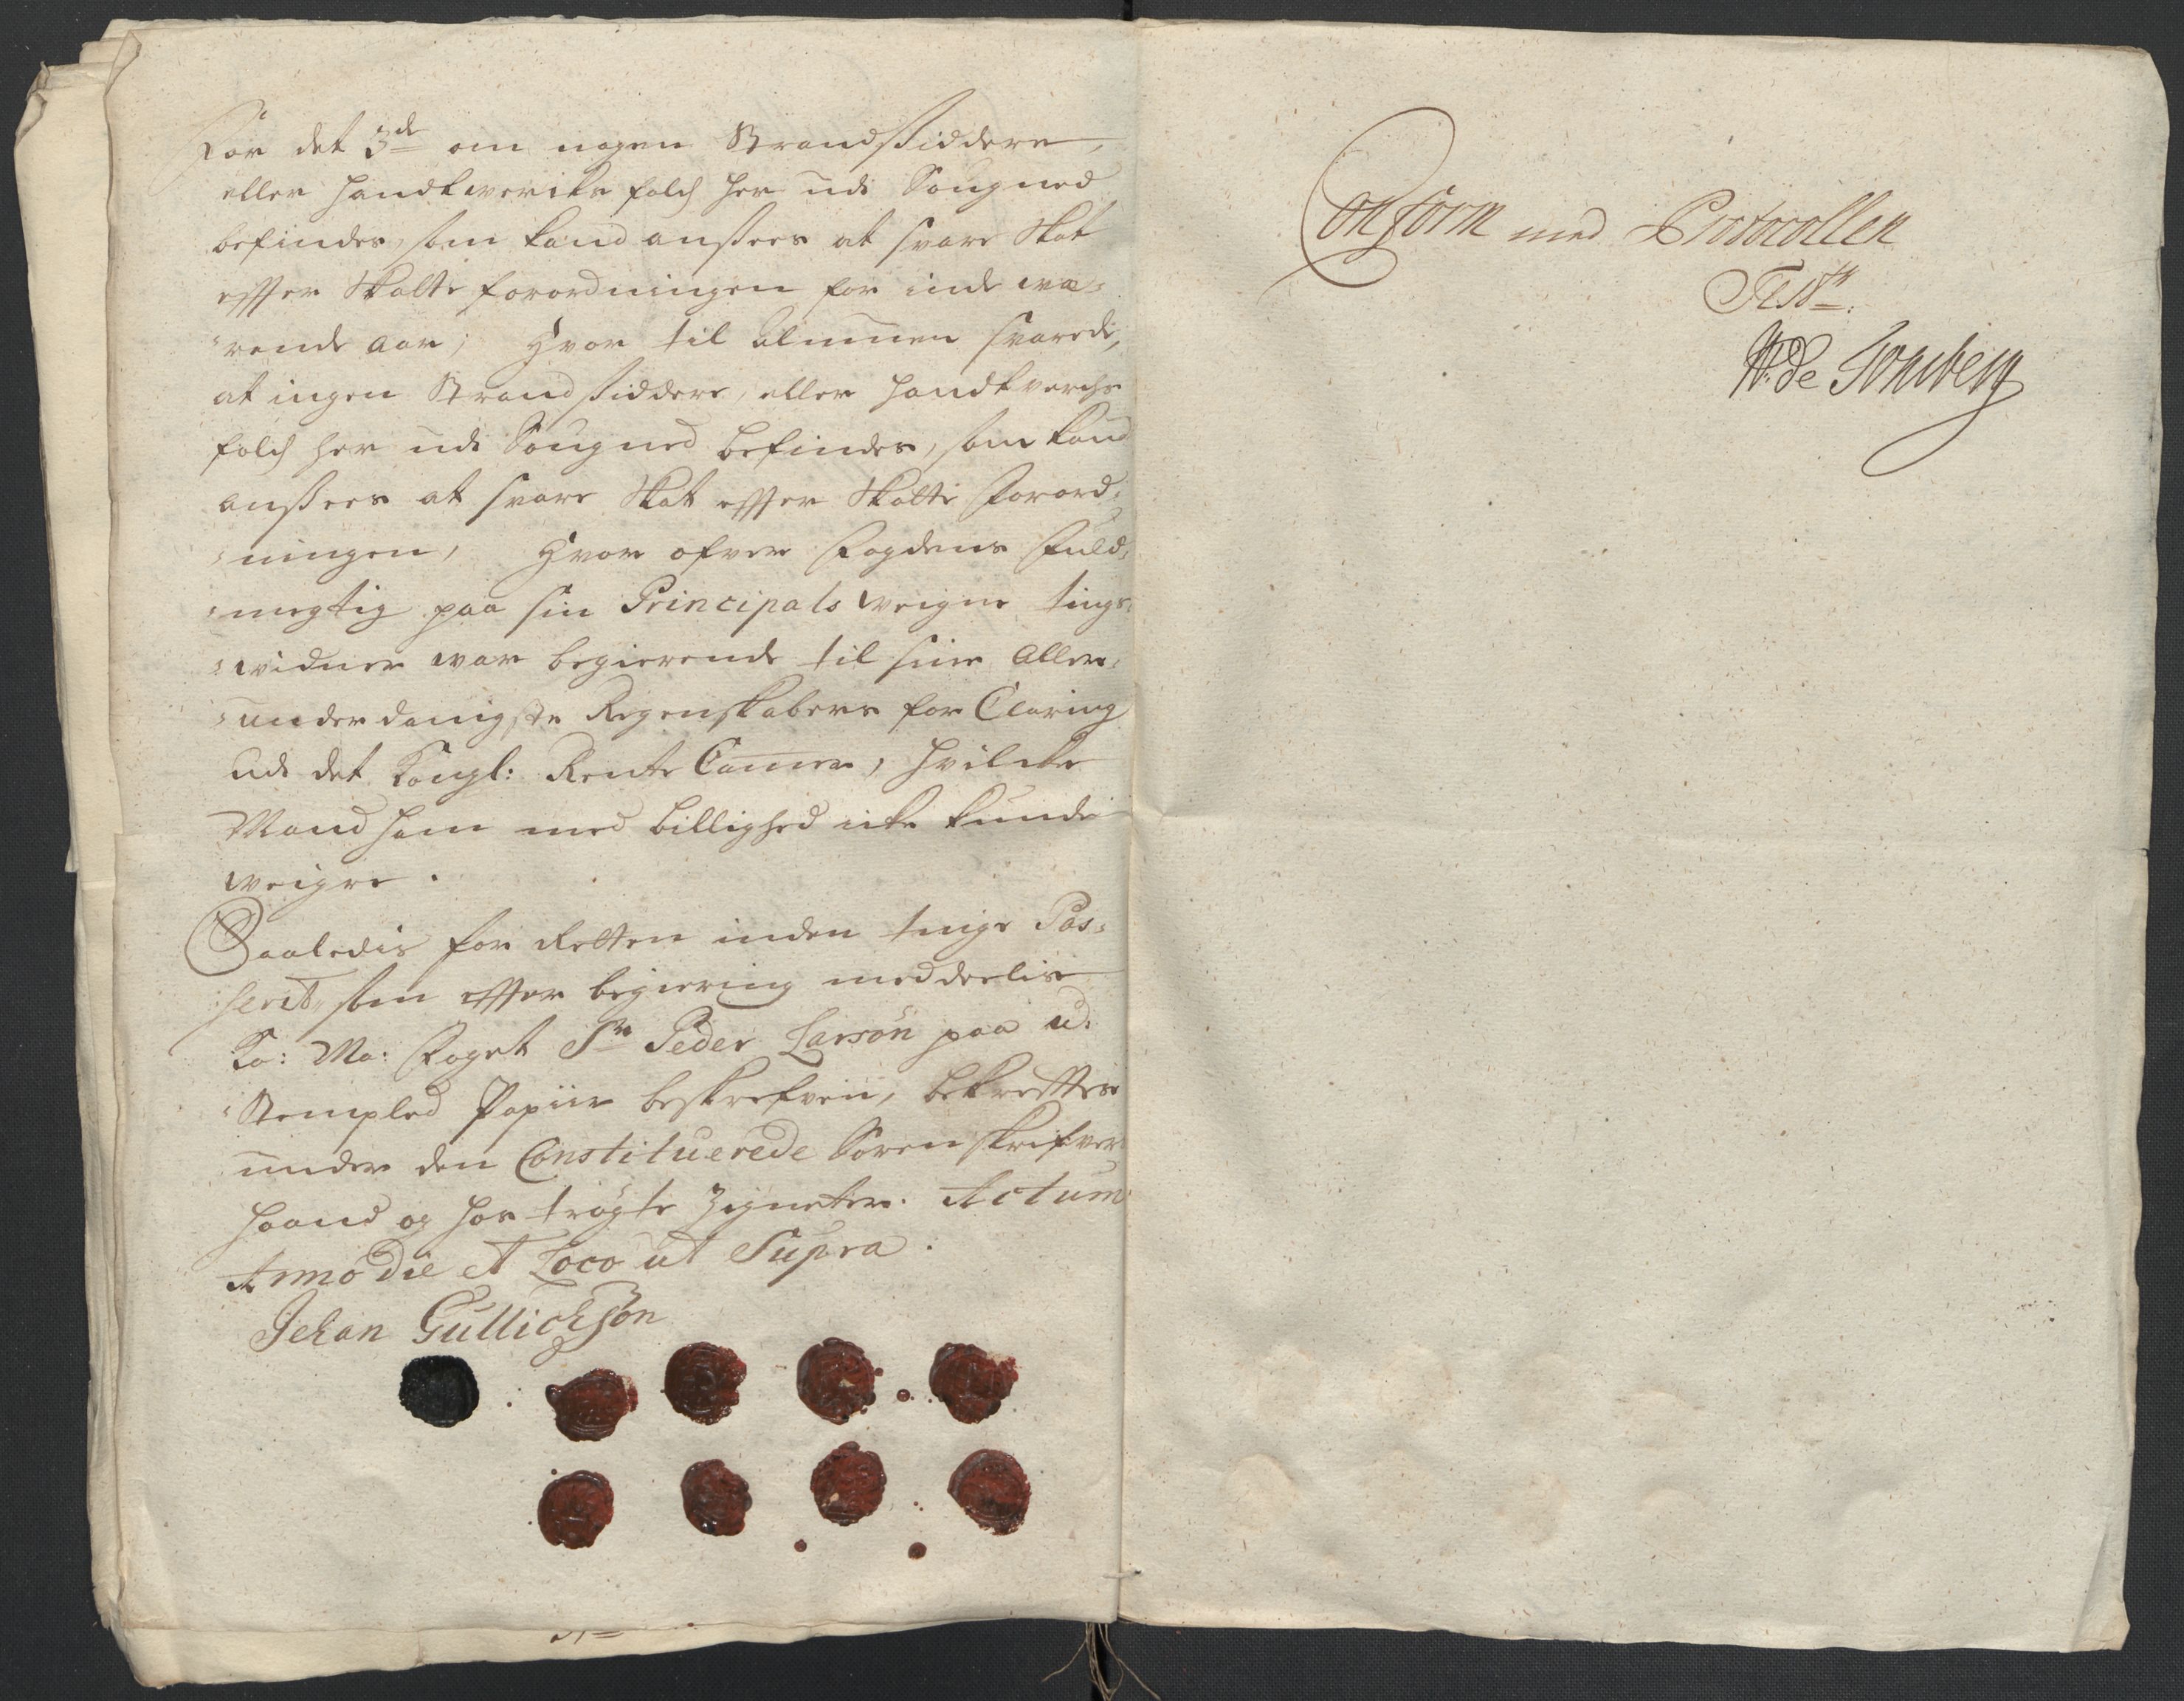 For det 3de om nogen Strandsiddere,
eller Handtwercks folch her udi Sougned
befindes, som kand ansees at svare Skat
effter Skatte forordningen for inde wæ=
rende aar; Hvor til Almuen svarede,
at ingen Strandsiddere, eller Handtverchs
folch her udi Sougned befindes, som kand
ansees at svare Skat effter Skatte Forord=
ningen, Hvor ofver Fogdens Fuld=
megtig paa sin Principals weigne tings=
widner war begierende til sine Aller=
underdanigste Regenskabers for Claring
udi det Kongl: Rente Cammer, hvilcke
Mand ham med billighed icke kunde
weigre.
Saaledis for Retten inden tinge Pas=
serit, som effter begiering meddeelis
Ko: Ma: Foget Sr Peder Larsøn paa u=
Stempled Papiir beskrefven, bekreftes
under den Constituerede Sorenskrifvers
Haand og hos trøgte Zigneter. Actum
Anno die et Loco ut Supra.
Jehan Gullichsøn
Conform med Protocollen
Test: